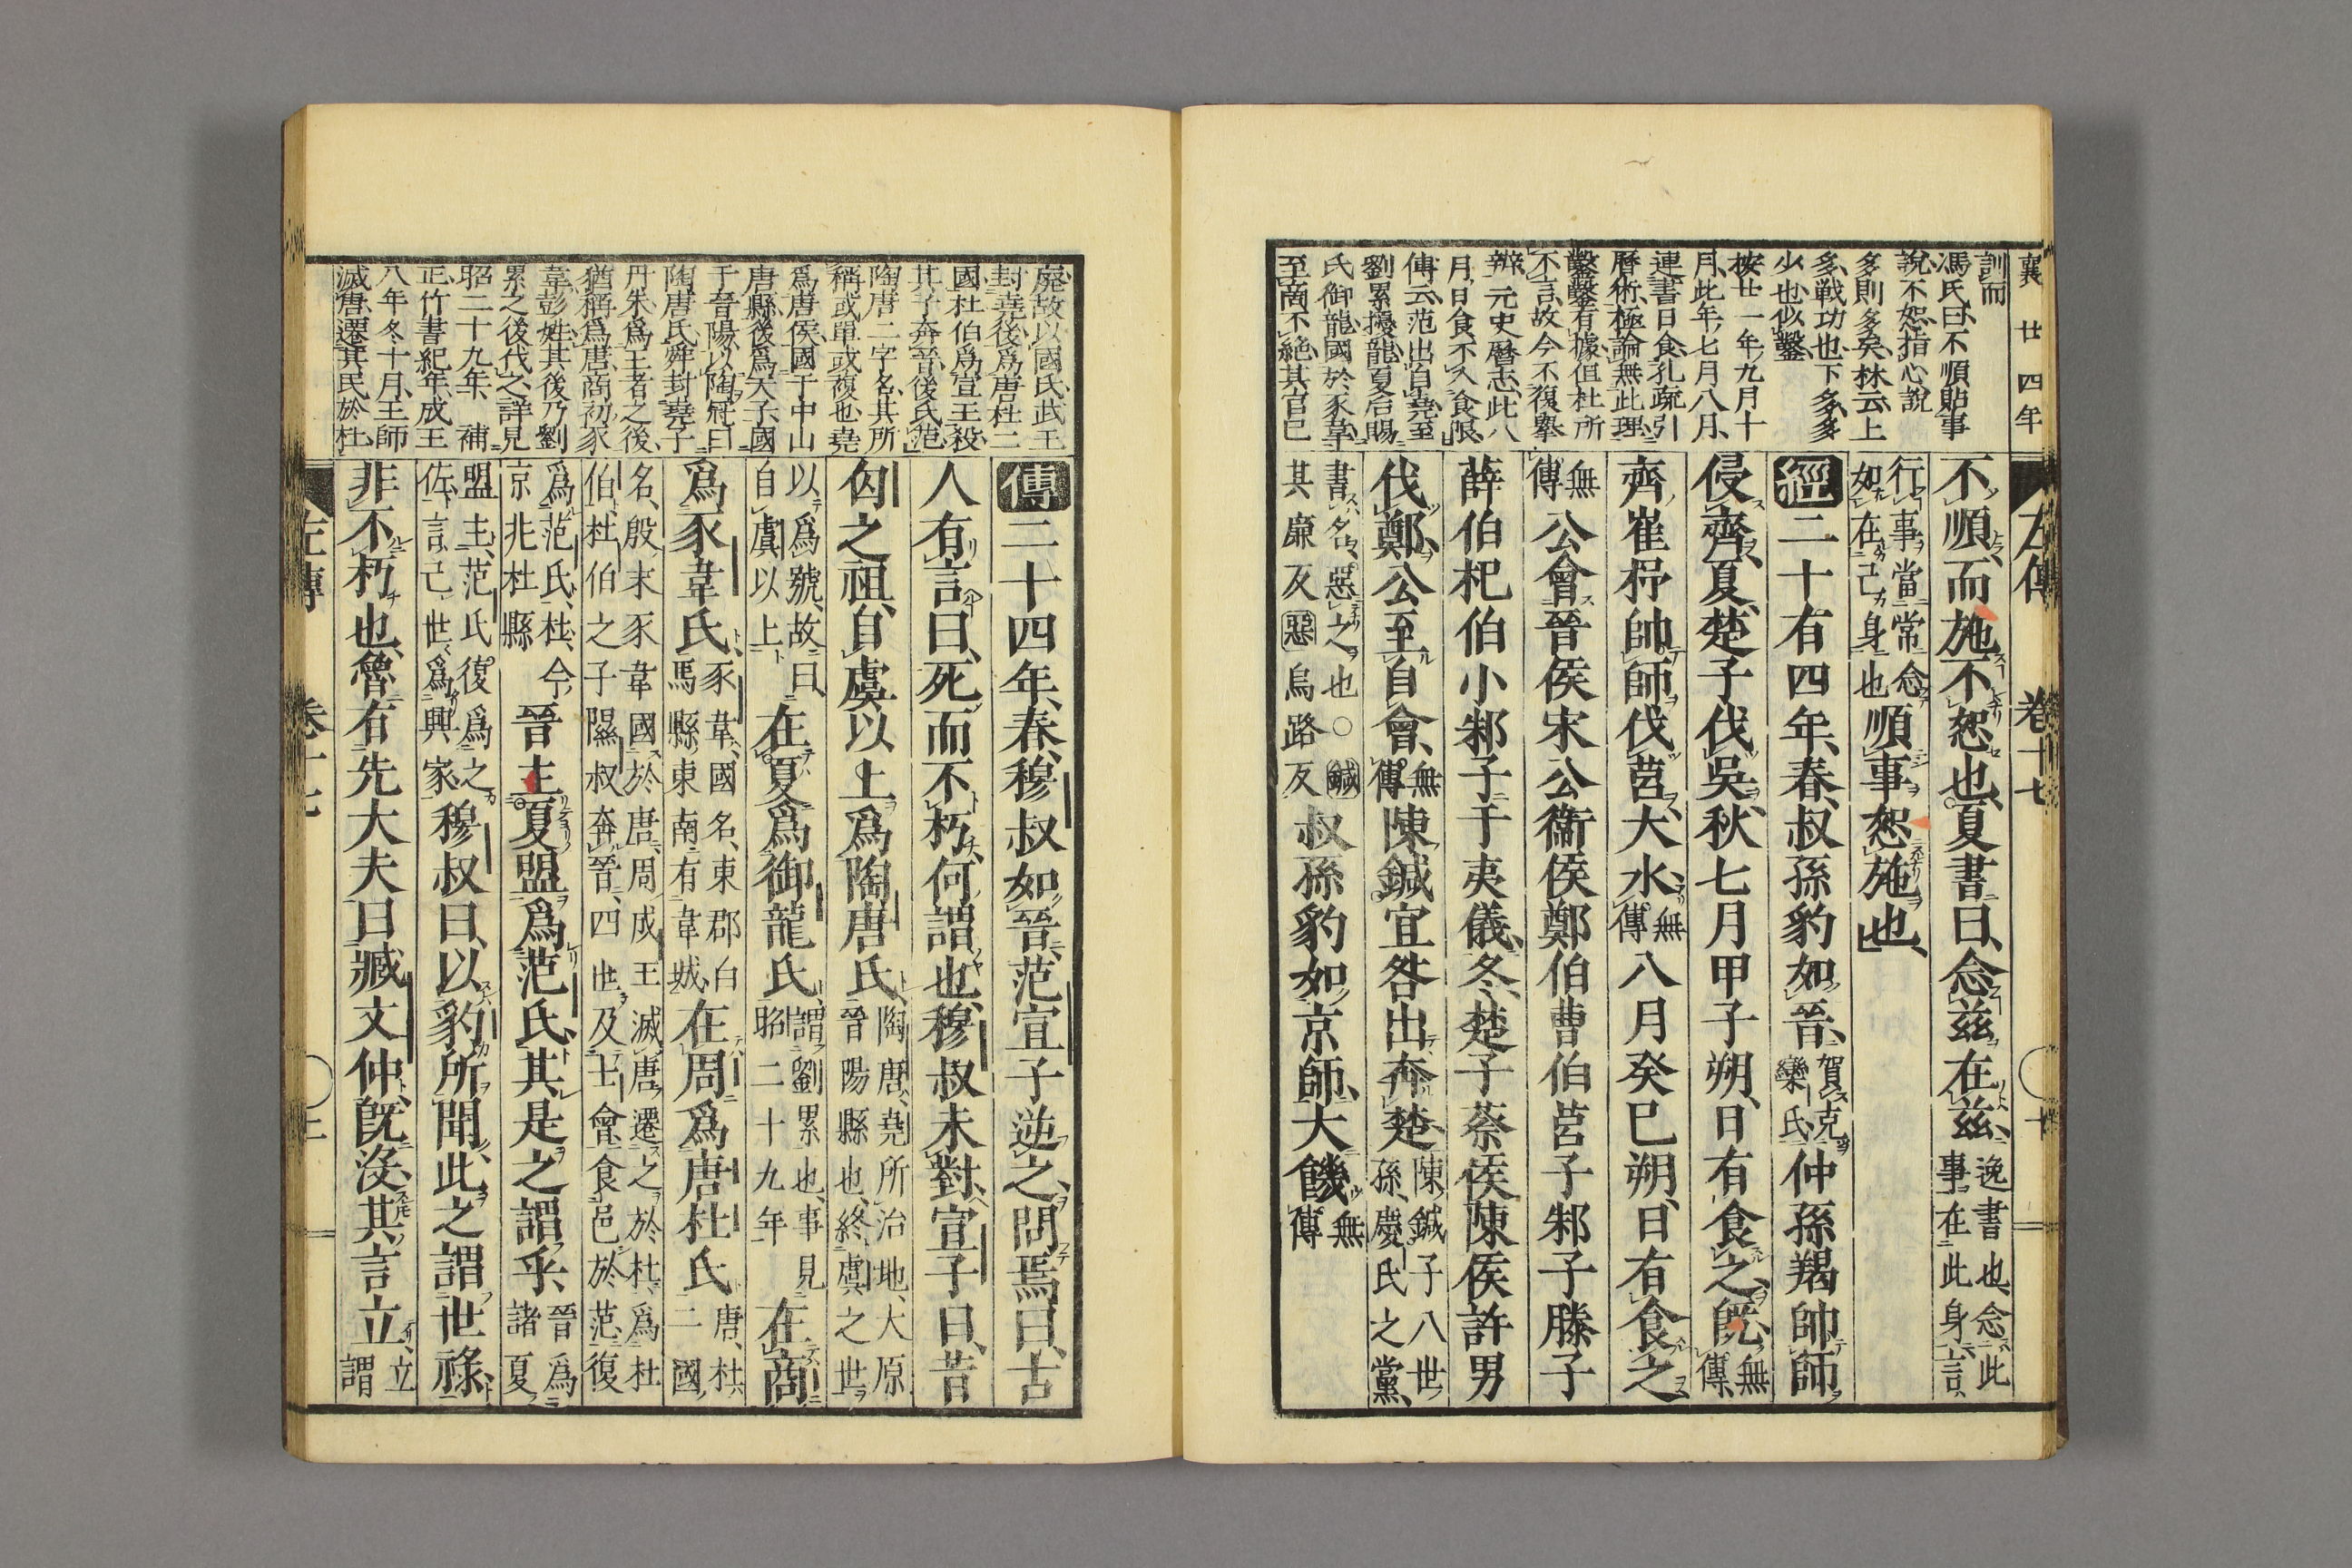 襄 廿四年
左傳 卷十七 十
訓而
馮氏曰不順貼事
說不恕指心說
多則多矣林云上
多戰功也下多多
少也似鑿
按廿一年九月十
月此年七月八月
連書日食孔疏引
曆術極論無此理
鑿鑿有據但杜所
不言故今不復舉
辨元史曆志此八
月日食不入食限
傳云范出自堯至
劉累擾龍夏后賜
氏御龍國於豕韋
至商不絕其官已
不順、而施不恕也、夏書曰、念茲在茲、逸書也、念此事在此身、言、
行事當常念如在己身也順事恕施也、
經二十有四年、春、叔孫豹如晉、賀克欒氏仲孫羯帥師
侵齊、夏、楚子伐吳、秋、七月甲子朔、日有食之、既、無傳、
齊崔杼帥師伐莒、大水、無傳八月癸巳朔、日有食之
無傳公會晉侯宋公衞侯鄭伯曹伯莒子邾子滕子
薛伯杞伯小邾子于夷儀、冬、楚子蔡侯陳侯許男
伐鄭、公至自會、無傳陳鍼宜咎出奔楚、陳鍼子八世孫、慶氏之黨、
書名、惡之也○鍼其廉反惡烏路反叔孫豹如京師、大饑無傳
廢故以國氏、武王
封堯後爲唐杜二
國杜伯爲宣王殺
其子奔晉後氏范
陶唐二字名其所
稱或單或複也堯
爲唐侯國于中山
唐縣後爲天子國
于晉陽以陶冠曰
陶唐氏舜封堯子
丹朱爲王者之後
猶稱爲唐商初豕
韋彭姓其後乃劉
累之後代之詳見
昭二十九年 補
正竹書紀年成王
八年冬十月王師
滅唐遷其民於杜
傳二十四年、春、穆叔如晉、范宣子逆之、問焉曰、古
人有言曰、死而不朽、何謂也、穆叔未對、宣子曰、昔
匄之祖、自虞以上爲陶唐氏、陶唐、堯所治地、大原晉陽縣也、終虞之世
以爲號、故曰自虞以上在夏爲御龍氏、謂劉累也、事見昭二十九年在商
爲豕韋氏、豕韋、國名、東郡白馬縣東南有韋城、在周爲唐杜氏唐、杜、二國
名、殷末豕韋國於唐、周成王滅唐、遷之於杜、爲杜伯、杜伯之子隰叔奔晉、四世及士會、食邑於范、復
爲范氏、杜、今京兆杜縣晉主夏盟爲范氏、其是之謂乎、晉爲諸夏
盟主、范氏復爲之佐、言己世爲興家穆叔曰、以豹所聞、此之謂世祿、
非不朽也、魯有先大夫曰臧文仲、既沒、其言立、立謂
左傳 卷十七 十一